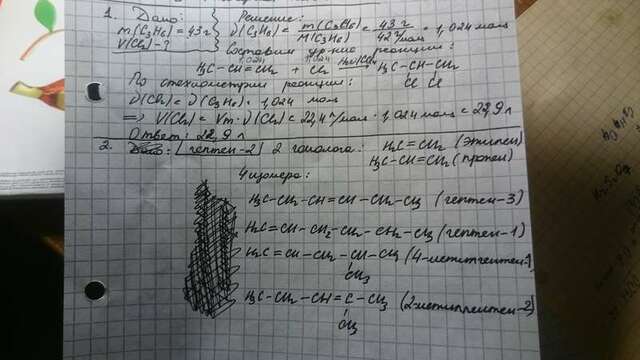 1. Дано: Решение:
m(C₃H₆) = 43 г ν(C₃H₆) = m(C₃H₆)/M(C₃H₆) = 43 г/42 г/моль = 1,024 моль
V(Cl₂) - ? Составим ур-ние реакции:
1,024 1,024
H₃C-CH=CH₂ + Cl₂ → H₃C-CH-CH₂
Cl Cl
По стехиометрии реакции:
ν(Cl₂) = ν(C₃H₆) = 1,024 моль
=> V(Cl₂) = Vm · ν(Cl₂) = 22,4 л/моль · 1,024 моль = 22,9 л
Ответ: 22,9 л
2. гептен-2 2 гомолога: H₂C=CH₂ (этилен)
H₃C-CH=CH₂ (пропен)
4 изомера:
H₃C-CH₂-CH=CH-CH₂-CH₂-CH₃ (гептен-3)
H₂C=CH-CH₂-CH₂-CH₂-CH₃ (гептен-1)
H₂C=CH-CH₂-CH-CH₃ (4-метилпентен-1)
CH₃
H₃C-CH₂-CH=C-CH₃ (2-метилпентен-2)
CH₃